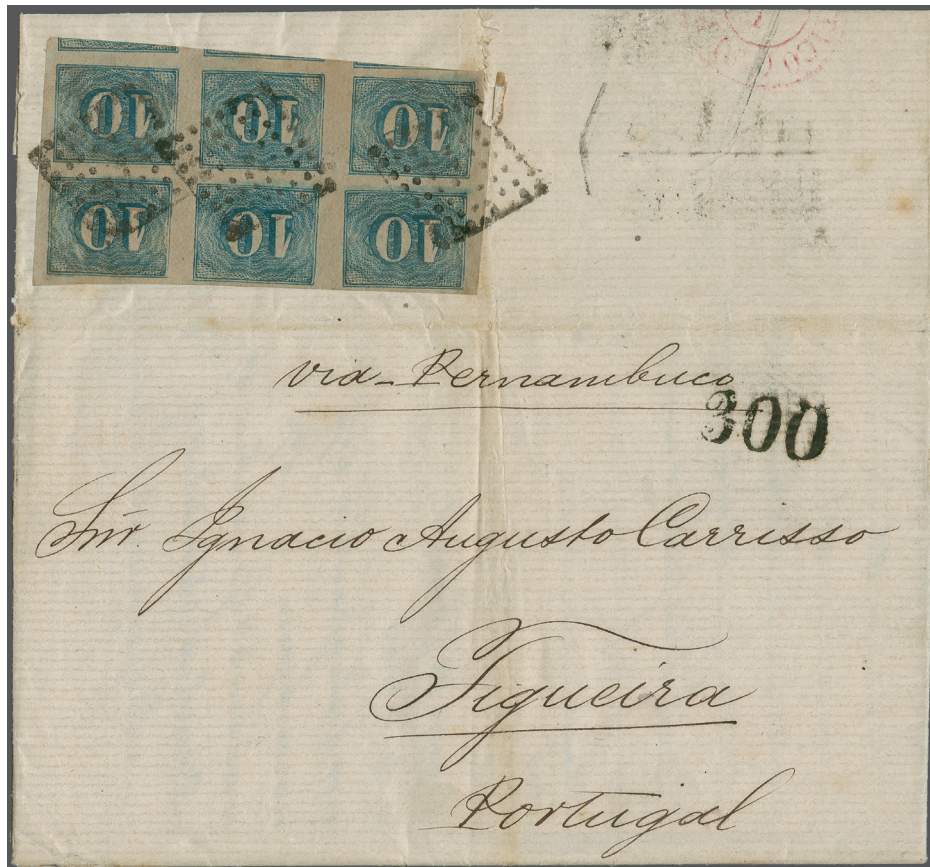 10 10 10
10 10 10
via - Pernambuco
300
Snr. Ignacio Augusto Carrisso
Figueira
Portugal